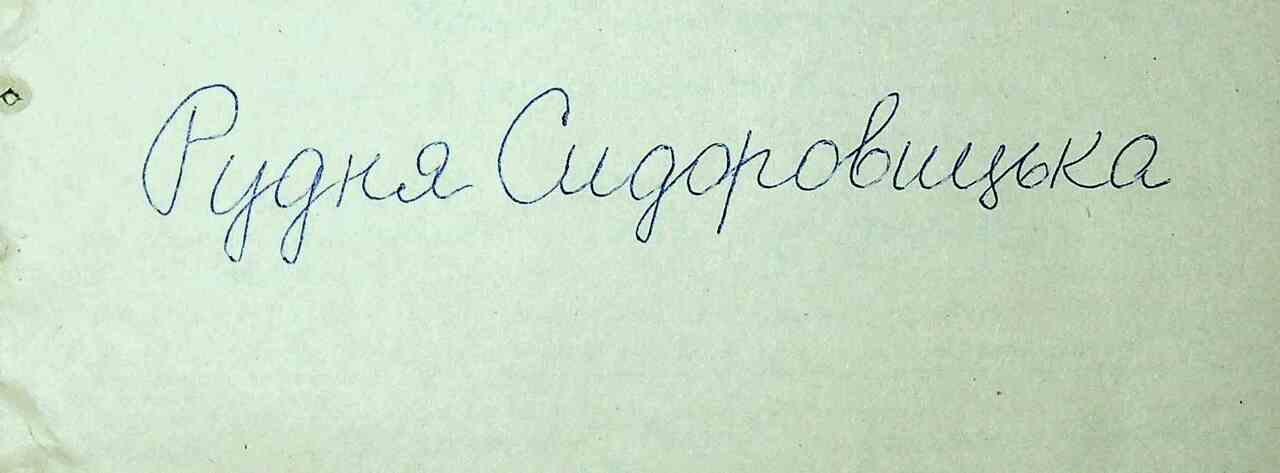 Рудня Сидоровицька